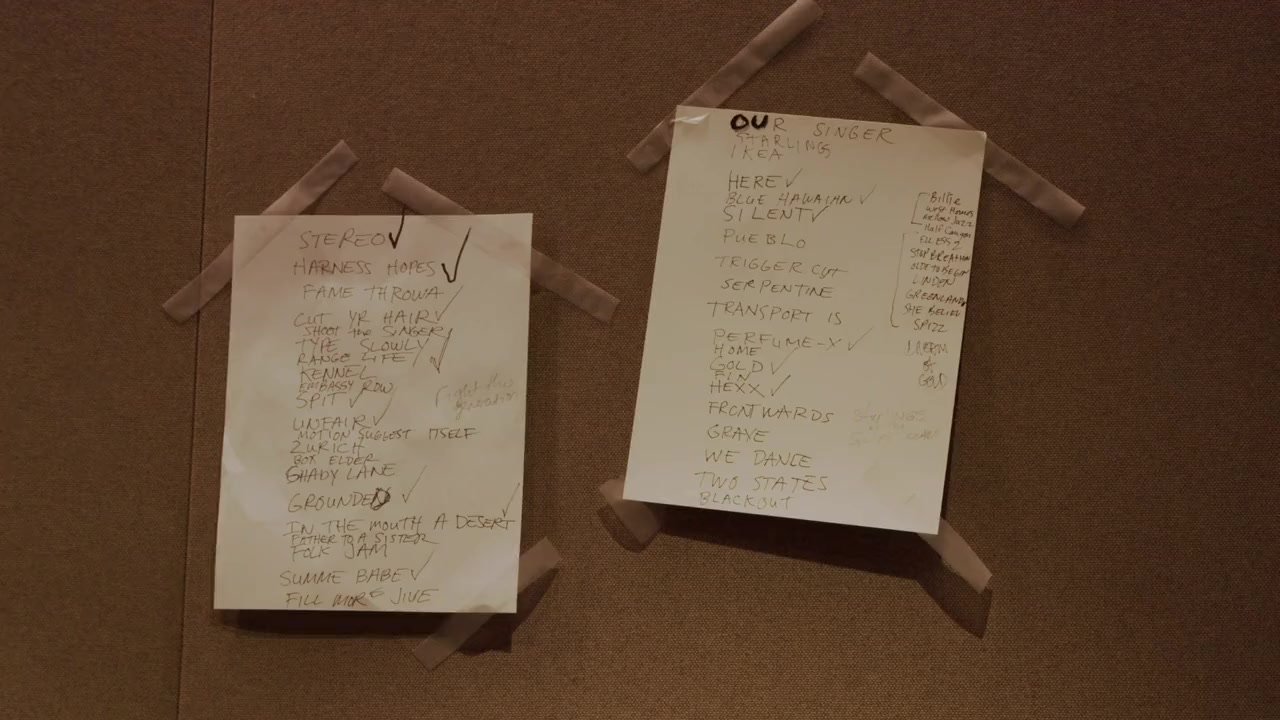 STEREO ✓
HARNESS HOPES ✓
FAME THROWA
CUT YR HAIR ✓
SHOOT the SINGER
TYPE SLOWLY
RANGE LIFE ✓
KENNEL
EMBASSY ROW
SPIT ✓
Fight this
generation
UNFAIR ✓
MOTION SUGGEST ITSELF
ZURICH
BOX ELDER
SHADY LANE
GROUNDED ✓
IN THE MOUTH A DESERT ✓
FATHER TO A SISTER
FOLK JAM
SUMME BABE ✓
FILL MORE JIVE
OUR SINGER
STARLINGS
IKEA
HERE ✓
BLUE HAWAIIN ✓
SILENT ✓
PUEBLO
TRIGGER CUT
SERPENTINE
TRANSPORT IS
PERFUME-X ✓
HOME
GOLD ✓
FIN
HEXX ✓
FRONTWARDS
GRAVE
WE DANCE
TWO STATES
BLACKOUT
Billie
Mellow Jazz
Half Canyon
ELL ESS 2
STOP BREATHIN
OLDE TO BEGIN
LINDEN
GREENLAND
SHE BELIEV
SPIZZ
&
GOLD